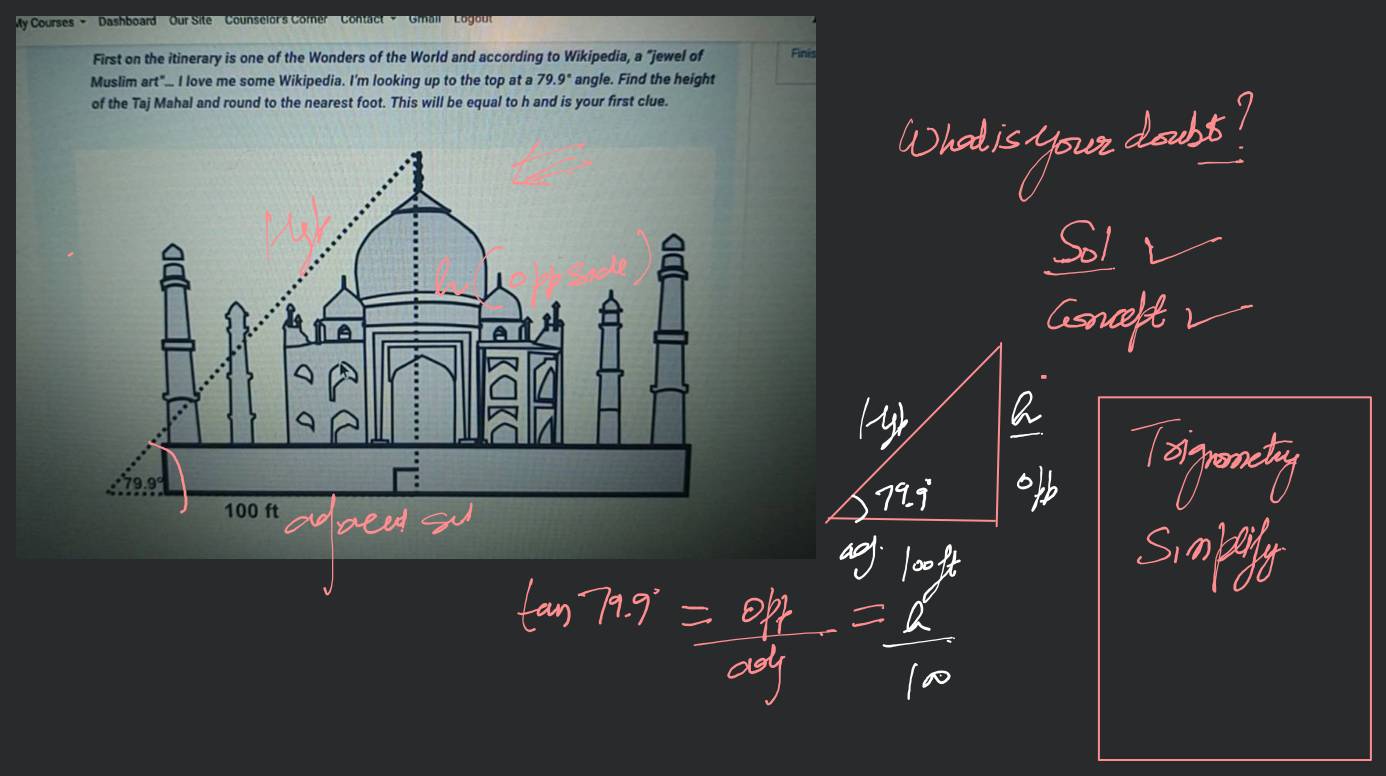 My Courses Dashboard Our Site Counselor's Corner Contact Gmail Logout
First on the itinerary is one of the Wonders of the World and according to Wikipedia, a "jewel of
Muslim art"... I love me some Wikipedia. I'm looking up to the top at a 79.9° angle. Find the height
of the Taj Mahal and round to the nearest foot. This will be equal to h and is your first clue.
Finis
What is your doubt?
Sol ✓
Concept ✓
Hyp
h (opp side)
79.9°
100 ft
Hyp
h
opp
79.9°
adj.
100ft
Trignometry
Simplify
tan 79.9° = opp/adj = h/100